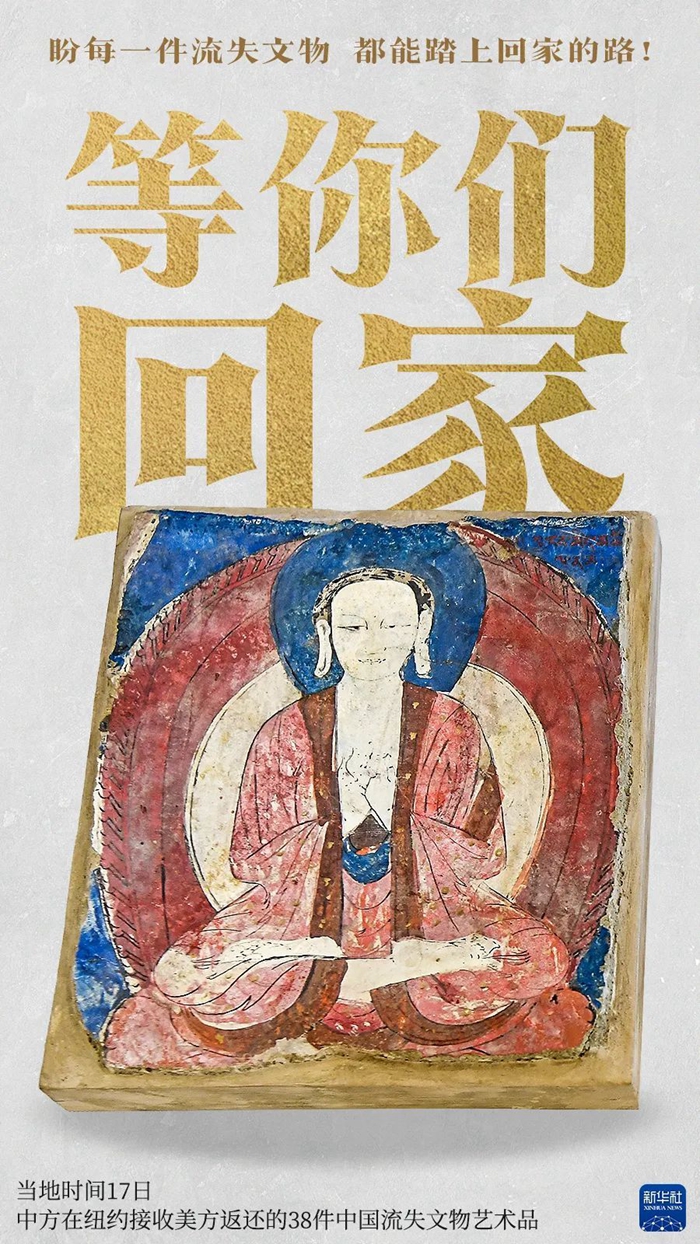 盼每一件流失文物 都能踏上回家的路！
等你们
回家
当地时间17日
中方在纽约接收美方返还的38件中国流失文物艺术品
新华社
XINHUA NEWS